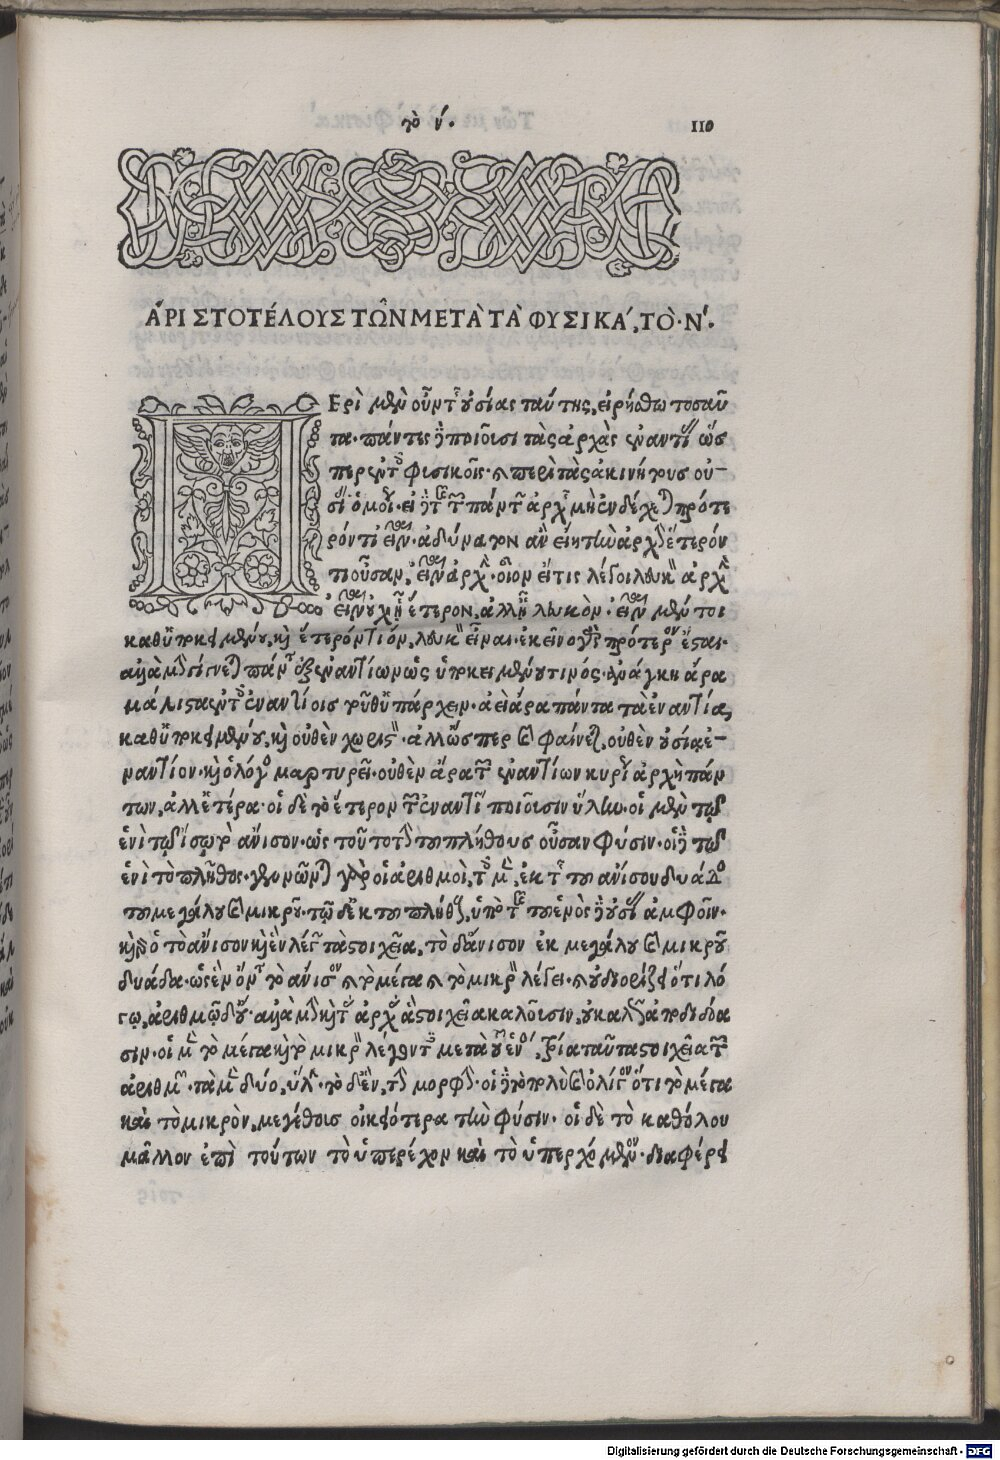 τὸ ν΄.
110
ἈΡΙΣΤΟΤΈΛΟΥΣ ΤΩ͂Ν ΜΕΤᾺ ΤᾺ ΦΥΣΙΚΆ, ΤῸ·Ν΄.
Περὶ μὲν οὖν τῆς οὐσίας ταύτης, εἰρήσθω τοσαῦ
τα· πάντες δὲ ποιοῦσι τὰς ἀρχὰς ἐναντίας ὥσ
περ ἐν τοῖς φυσικοῖς· καὶ περὶ τὰς ἀκινήτους οὐ-
σίας ὁμοίως· εἰ δὲ τῆς τῶν πάντων ἀρχῆς μὴ ἐνδέχεται πρότε
ρόν τι εἶναι· ἀδύνατον ἂν εἴη τὴν ἀρχὴν ἕτερόν
τι οὖσαν, εἶναι ἀρχήν· οἷον εἴ τις λέγοι λευκὸν ἀρχὴν
εἶναι οὐχ ᾗ ἕτερον, ἀλλ' ᾗ λευκὸν· εἶναι μέντοι
καθ' ὑποκειμένου, καὶ ἕτερόν τι ὂν, λευκὸν εἶναι· ἐκεῖνο γὰρ πρότερον ἔσται·
ἀλλὰ μὴν γίνεται πάντα ἐξ ἐναντίων ὡς ὑποκειμένου τινός· ἀνάγκη ἄρα
μάλιστα ἐν τοῖς ἐναντίοις τοῦθ' ὑπάρχειν· ἀεὶ ἄρα πάντα τὰ ἐναντία,
καθ' ὑποκειμένου, καὶ οὐθὲν χωριστόν· ἀλλ' ὥσπερ καὶ φαίνεται, οὐθὲν οὐσίᾳ ἐ-
ναντίον· καὶ ὁ λόγος μαρτυρεῖ· οὐθὲν ἄρα τῶν ἐναντίων κυρίως ἀρχὴ πάν
των, ἀλλ' ἑτέρα· οἱ δὲ τὸ ἕτερον τῶν ἐναντίων ποιοῦσιν ὕλην· οἱ μὲν τῷ
ἑνὶ τῷ ἴσῳ τὸ ἄνισον· ὡς τοῦτο τὴν τοῦ πλήθους οὖσαν φύσιν· οἱ δὲ τῷ
ἑνὶ τὸ πλῆθος· γεννῶνται γὰρ οἱ ἀριθμοὶ, τοῖς μὲν, ἐκ τῆς τοῦ ἀνίσου δυάδος
τοῦ μεγάλου καὶ μικροῦ· τῷ δ' ἐκ τοῦ πλήθους, ὑπὸ τῆς τοῦ ἑνὸς δὲ οὐσίας ἀμφοῖν·
καὶ γὰρ ὁ τὸ ἄνισον καὶ ἓν λέγων τὰ στοιχεῖα, τὸ δ' ἄνισον ἐκ μεγάλου καὶ μικροῦ
δυάδα· ὡς ἓν ὄντα τὸ ἄνισον καὶ τὸ μέγα καὶ τὸ μικρὸν λέγει· καὶ οὐ διορίζει ὅτι λό
γῳ, ἀριθμῷ δ' οὔ· ἀλλὰ μὴν καὶ τὰς ἀρχὰς ἃς στοιχεῖα καλοῦσιν, οὐ καλῶς ἀποδιδόα
σιν· οἱ μὲν τὸ μέγα καὶ τὸ μικρὸν λέγοντες μετὰ τοῦ ἑνὸς, τρία ταῦτα στοιχεῖα τῶν
ἀριθμῶν· τὰ μὲν δύο, ὕλην· τὸ δ' ἓν, τὴν μορφήν· οἱ δὲ τὸ πολὺ καὶ ὀλίγον ὅτι τὸ μέγα
καὶ τὸ μικρὸν, μεγέθους οἰκειότερα τὴν φύσιν· οἱ δὲ τὸ καθόλου
μᾶλλον ἐπὶ τούτων τὸ ὑπερέχον καὶ τὸ ὑπερεχόμενον· διαφέρει
Digitalisierung gefördert durch die Deutsche Forschungsgemeinschaft - DFG